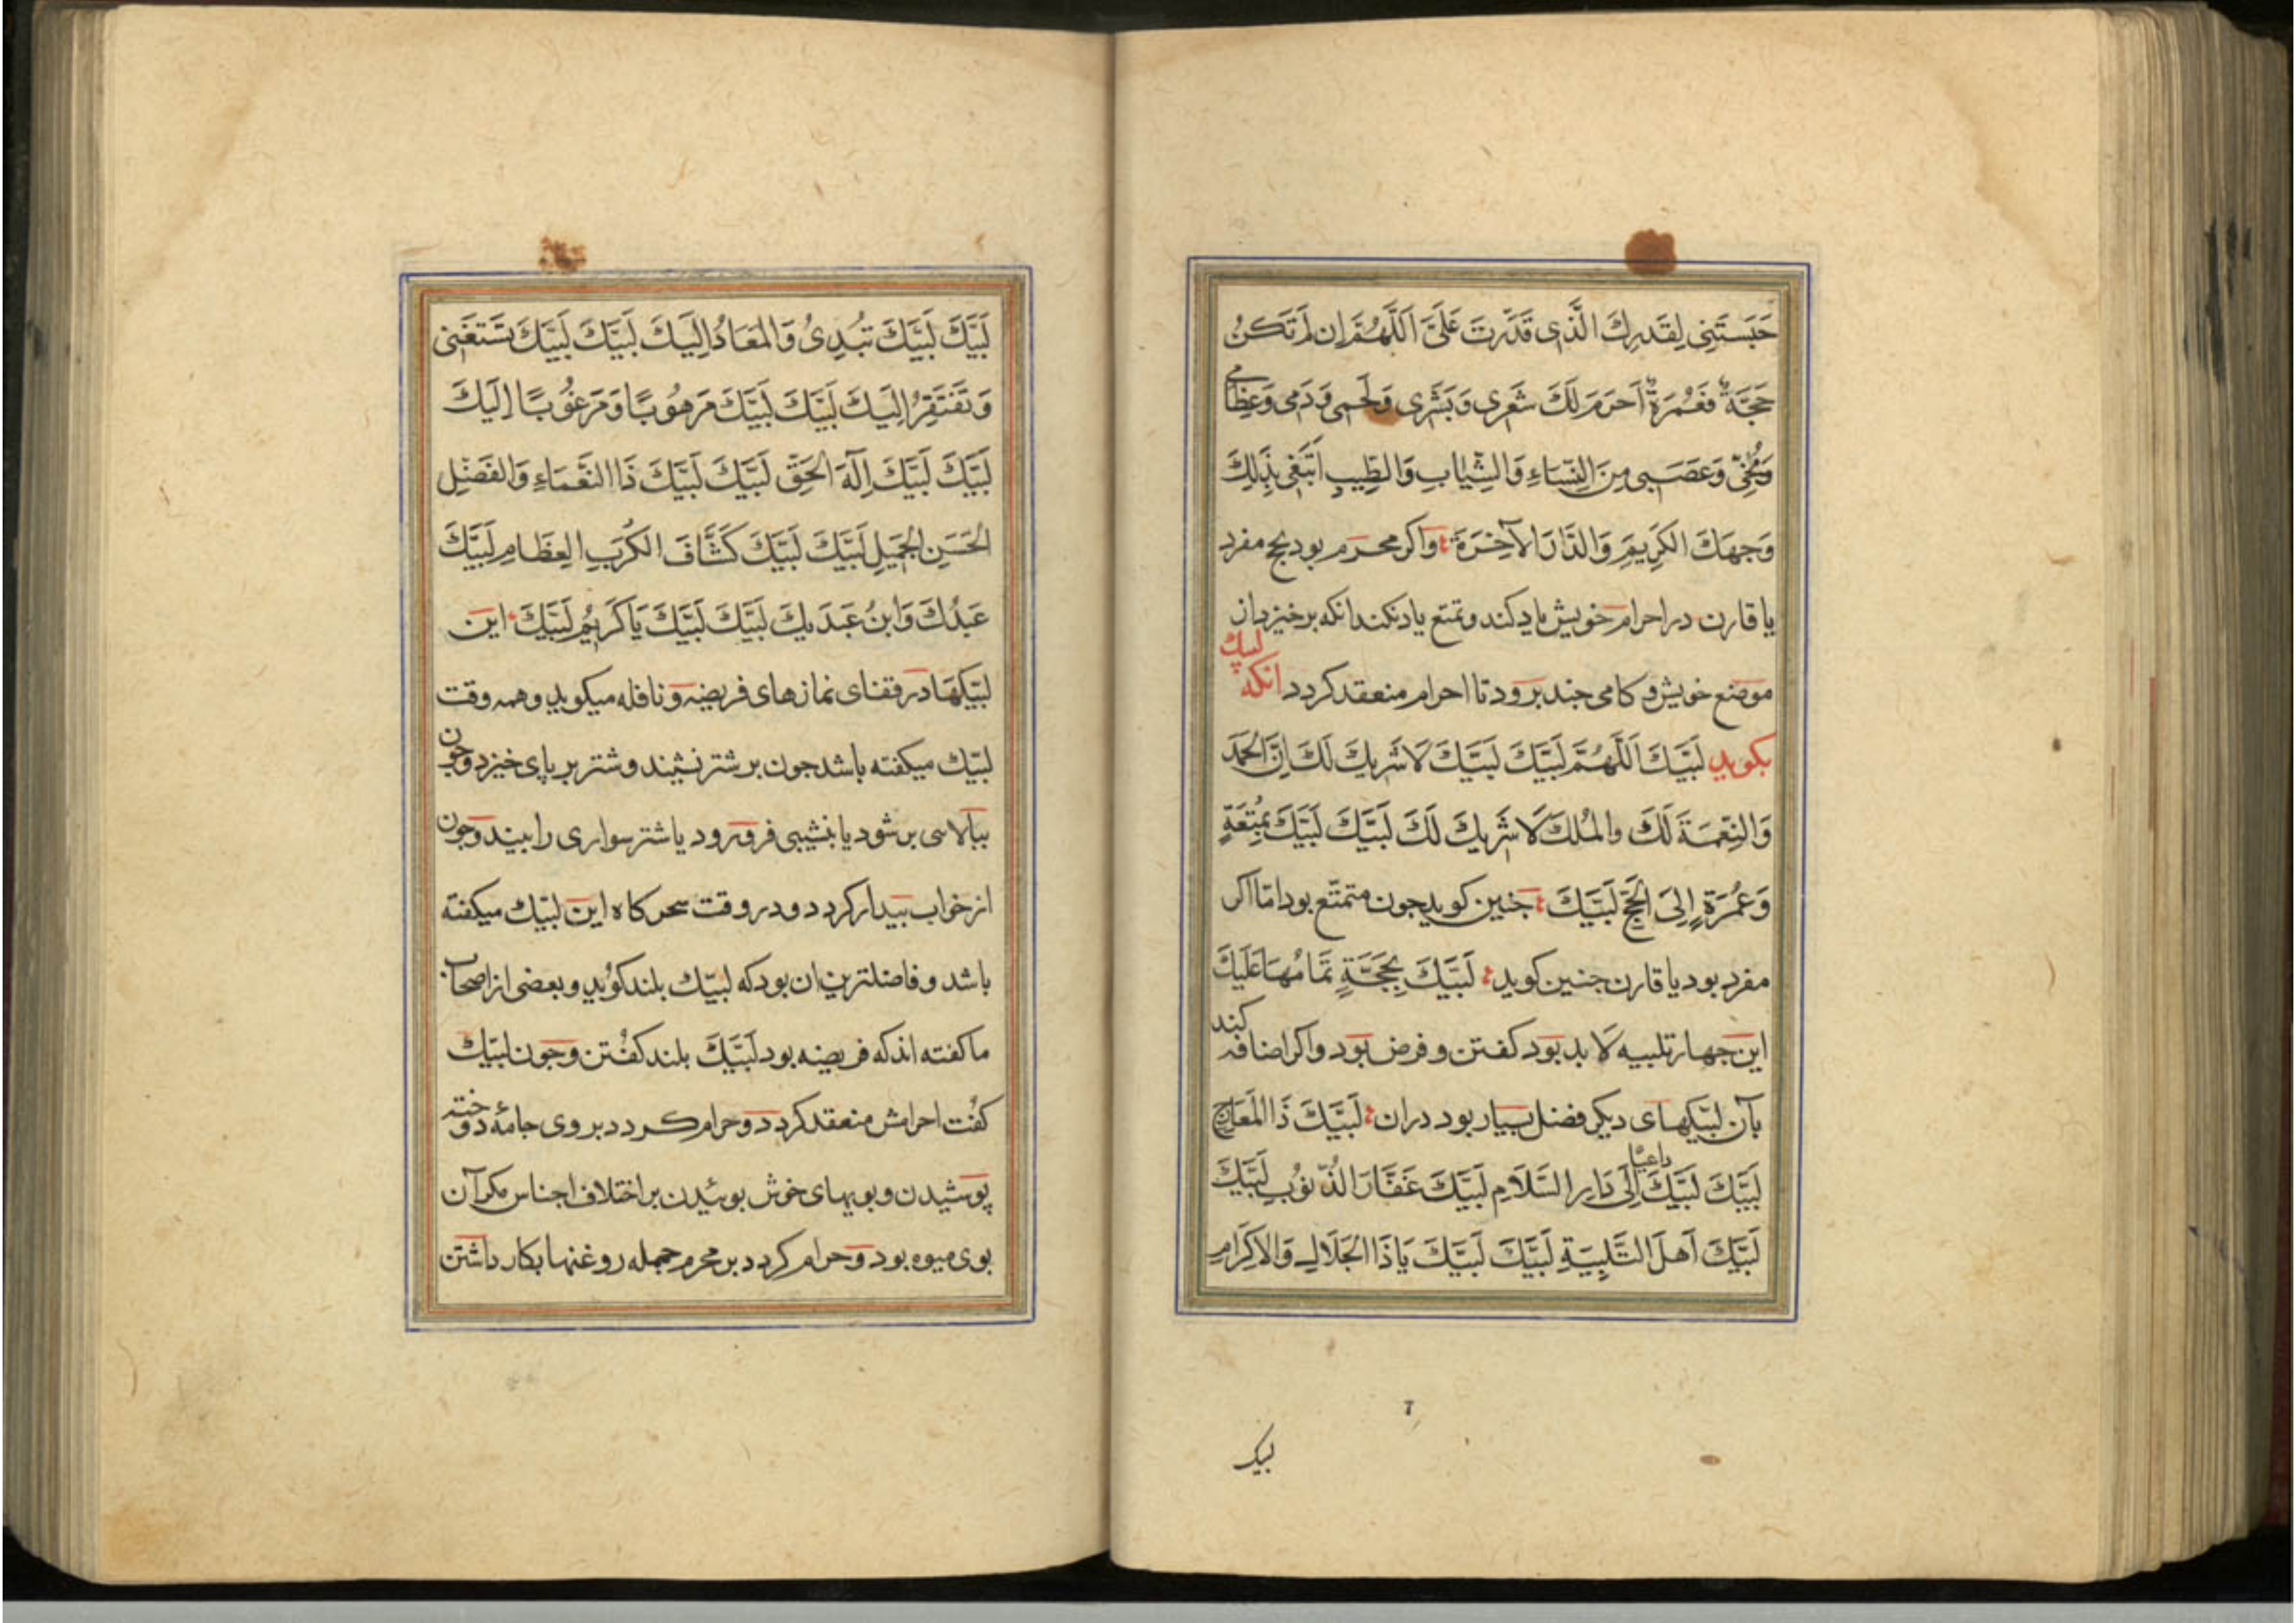 حَبَسْتَنِی لِقَدَرِكَ الَّذِی قَدَّرْتَ عَلَیَّ اَللّٰهُمَّ اِن لَمْ تَكُنْ
حَجَّةً فَعُمْرَةً اَحرَمَ لَكَ شَعَرِی وَبَشَرِی وَلَحمِی وَدَمِی وَعِظَامِی
وَمُخِّی وَعَصَبِی مِنَ النِّسَاءِ وَالثِّیَابِ وَالطِّیبِ اَبْتَغِی بِذٰلِكَ
وَجهَكَ الكَرِیمَ وَالدَّارَ الآخِرَةَ واکر محرم بود بحج مفرد
یا قارن در احرام خویش یاد کند و تمتع یاد نکند انکه برخیزد از
موضع خویش و کامی جند برود تا احرام منعقد کردد انکه لبیك
بکوید لَبَّیكَ اَللّٰهُمَّ لَبَّیكَ لَبَّیكَ لَا شَرِیكَ لَكَ اِنَّ الحَمدَ
وَالنِّعْمَةَ لَكَ والمُلكَ لَا شَرِیكَ لَكَ لَبَّیكَ لَبَّیكَ بِمُتعَةٍ
وَعُمْرَةٍ اِلَی الحَجِّ لَبَّیكَ جنین کوید جون متمتّع بود امّا اکر
مفرد بود یا قارن جنین کوید لَبَّیكَ بِحَجَّةٍ تَمَامُهَا عَلَیكَ
این جهار تلبیه لَا بد بود کفتن و فرض بود واکر اضافه کند
بآن لبّیکهای دیکر فضل بسیار بود دران لَبَّیكَ ذَا المَعَارِجِ
لَبَّیكَ لَبَّیكَ داعیًا اِلَی دَارِ السَّلَامِ لَبَّیكَ غَفَّارَ الذُّنُوبِ لَبَّیكَ
لَبَّیكَ اَهلَ التَّلبِیَةِ لَبَّیكَ لَبَّیكَ یَا ذَا الجَلَالِ وَالاِکرَامِ
7
لبیک
لَبَّیكَ لَبَّیكَ تُبدِئُ وَالمَعَادُ اِلَیكَ لَبَّیكَ لَبَّیكَ تَستَغنِی
وَتَفتَقِرُ اِلَیكَ لَبَّیكَ لَبَّیكَ مَرهُوبًا وَمَرغُوبًا اِلَیكَ
لَبَّیكَ لَبَّیكَ اِلٰهَ الحَقِّ لَبَّیكَ لَبَّیكَ ذَا النَّعْمَاءِ وَالفَضْلِ
الحَسَنِ الجَمِیلِ لَبَّیكَ لَبَّیكَ كَشَّافَ الكُرَبِ العِظَامِ لَبَّیكَ
عَبدُكَ وَابنُ عَبدَیكَ لَبَّیكَ لَبَّیكَ یَا كَرِیمُ لَبَّیكَ این
لبّیکها در قفای نمازهای فریضه و نافله میکوید وهمه وقت
لبّیك میکفته باشد جون بر شتر نشیند وشتر بر پای خیزد وجون
ببالاسی بر شود یا بنشیبی فرو رود یا شتر سواری را بیند وجون
از خواب بیدار کردد و در وقت سحرکاه این لبّیك میکفته
باشد و فاضلترین ان بود که لبّیك بلند کوید و بعضی از اصحاب
ما کفته اند که فریضه بود لَبَّیكَ بلند کفتن وجون لبّیك
کفت احرامش منعقد کردد و حرام کردد بر وی جامهٔ دوخته
پوشیدن و بویهای خوش بوئیدن بر اختلاف اجناس مکر آن
بوی میوه بود و حرام کردد بر محرم جمله روغنها بکار داشتن